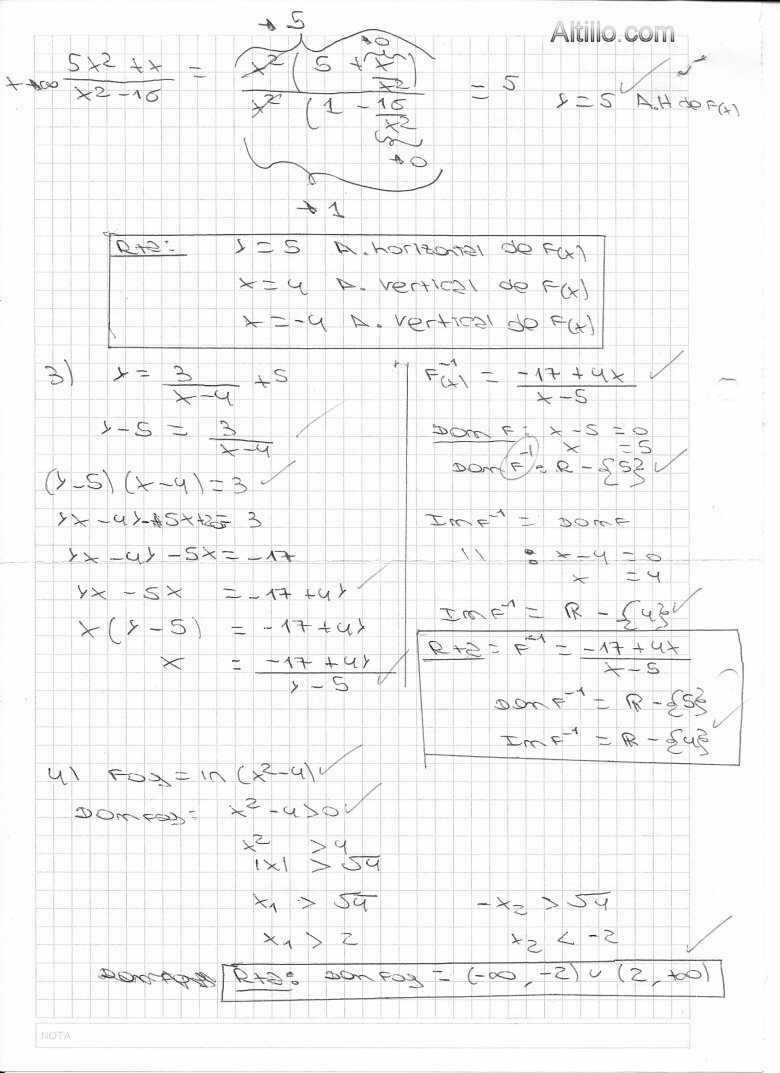 Altillo.com
→ 5
→0
x→∞ 5x² + x / x² - 16 = x² ( 5 + x/x² ) / x² ( 1 - 16/x² ) = 5 y = 5 A.H de F(x)
→0
→ 1
Rta: y = 5 A. horizontal de F(x)
x = 4 A. vertical de F(x)
x = -4 A. vertical de F(x)
3) y = 3 / x-4 + 5
y - 5 = 3 / x-4
(y-5) (x-4) = 3
yx - 4y - 5x + 20 = 3
yx - 4y - 5x = -17
yx - 5x = -17 + 4y
x (y - 5) = -17 + 4y
x = -17 + 4y / y - 5
F⁻¹(x) = -17 + 4x / x - 5
Dom F: x - 5 = 0
x = 5
Dom F⁻¹ = R - {5}
Im F⁻¹ = Dom F
" : x - 4 = 0
x = 4
Im F⁻¹ = R - {4}
Rta = F⁻¹ = -17 + 4x / x - 5
Dom F⁻¹ = R - {5}
Im F⁻¹ = R - {4}
4) Fog = ln (x² - 4)
Dom fog = x² - 4 > 0
x² > 4
|x| > √4
x₁ > √4 -x₂ > √4
x₁ > 2 x₂ < -2
Rta: Dom fog = (-∞, -2) ∪ (2, +∞)
NOTA